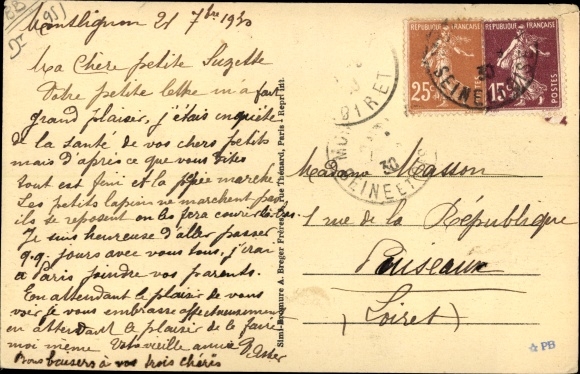 Montlignon 21 7bre 1930
Ma Chère petite Suzette
Votre petite lettre m'a fait
grand plaisir, j'étais inquiète
de la santé de vos chers petits
mais d'après ce que vous dites
tout est fini et la marche
Les petits lapin ne marchent pas
ils se reposent on les fera courir
Je suis heureuse d'aller passer
q.q. jours avec vous tous, j'irai
à Paris joindre vos parents.
En attendant le plaisir de vous
voir je vous embrasse affectueusement
en attendant le plaisir de le faire
moi même Votre vieille amie
Bons baisers à vos trois chéris
Simi-Bromure A. Breger Frères, Rue Thénard, Paris - Repr. Int.
REPUBLIQUE FRANÇAISE
25c
REPUBLIQUE FRANÇAISE
15c
POSTES
SEINE ET OISE
30
LOIRET
SEINE ET OISE
30
Madame Masson
1 rue de la République
Puiseaux
(Loiret)
PB